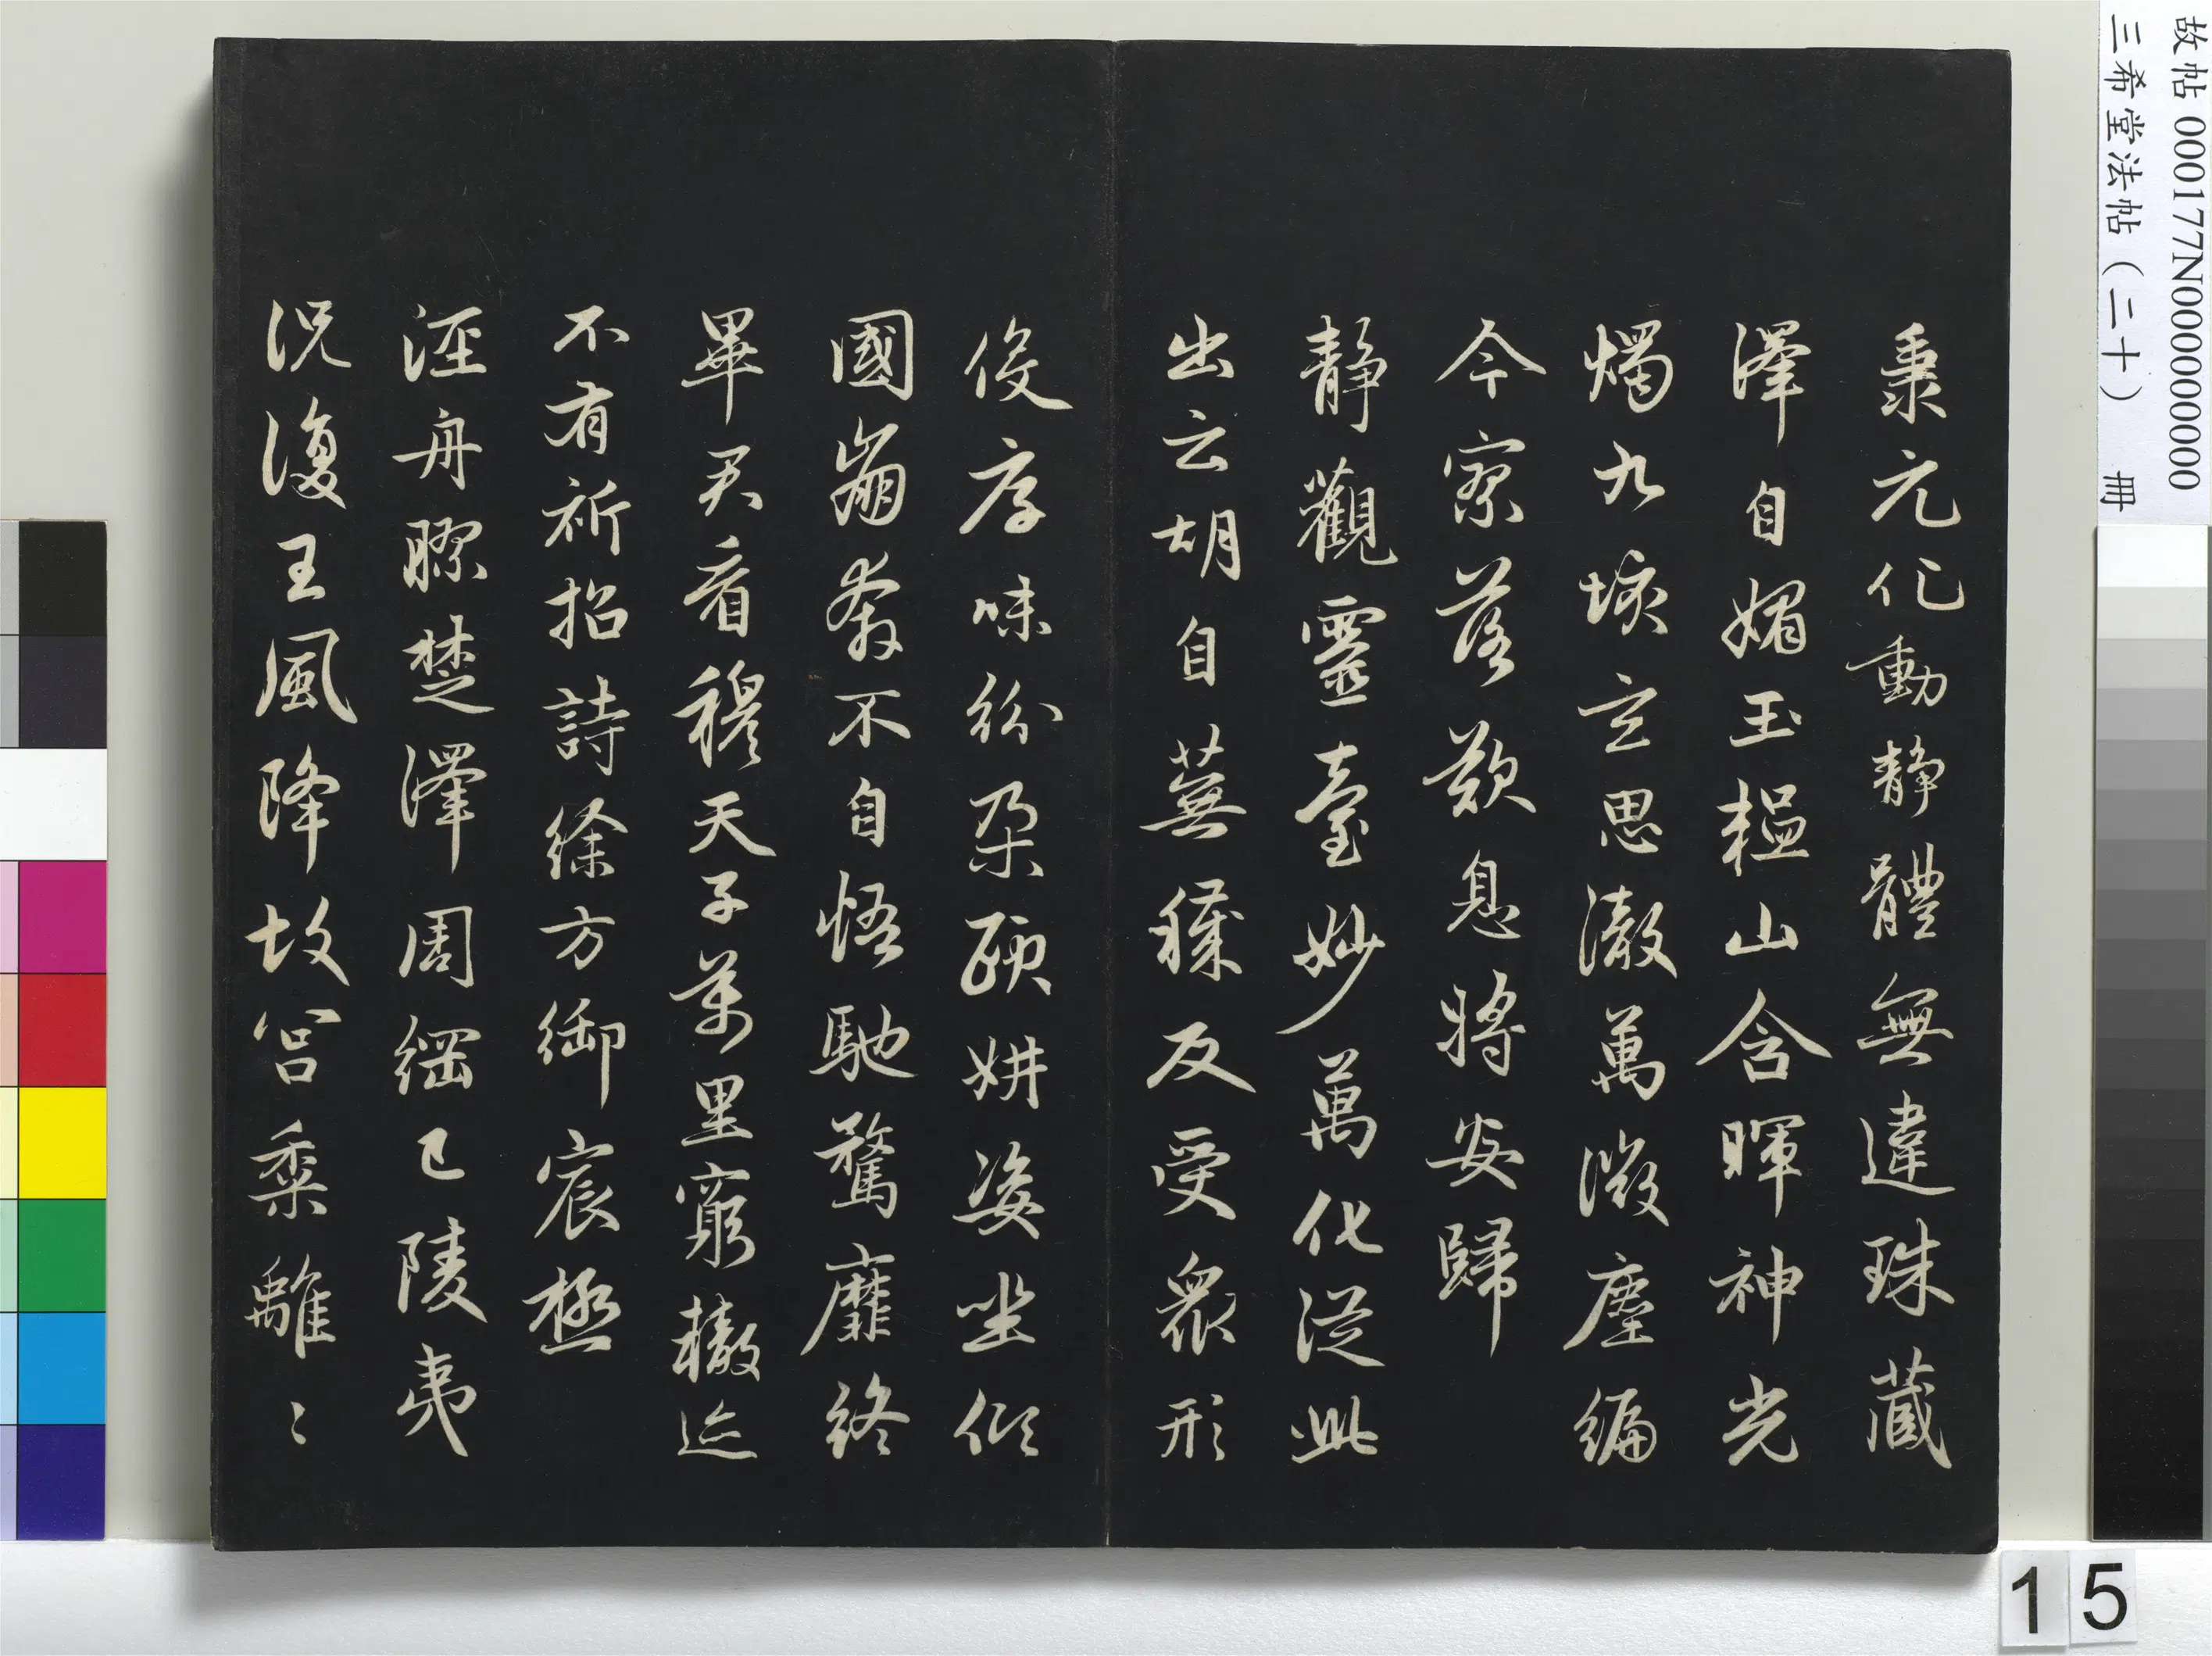 秉元化動靜體無違珠藏
澤自媚玉韞山含暉神光
燭九垓玄思澈萬微塵編
今寥落歎息將安歸
靜觀靈臺妙萬化從此
出云胡自蕪穢反受衆形
役厚味紛朵頤妍姿坐傾
國崩奔不自悟馳騖靡終
畢君看穆天子萬里窮轍迹
不有祈招詩徐方御宸極
涇舟膠楚澤周綱已陵夷
況復王風降故宮黍離〻
故帖 000177N000000000
三希堂法帖（二十） 冊
15